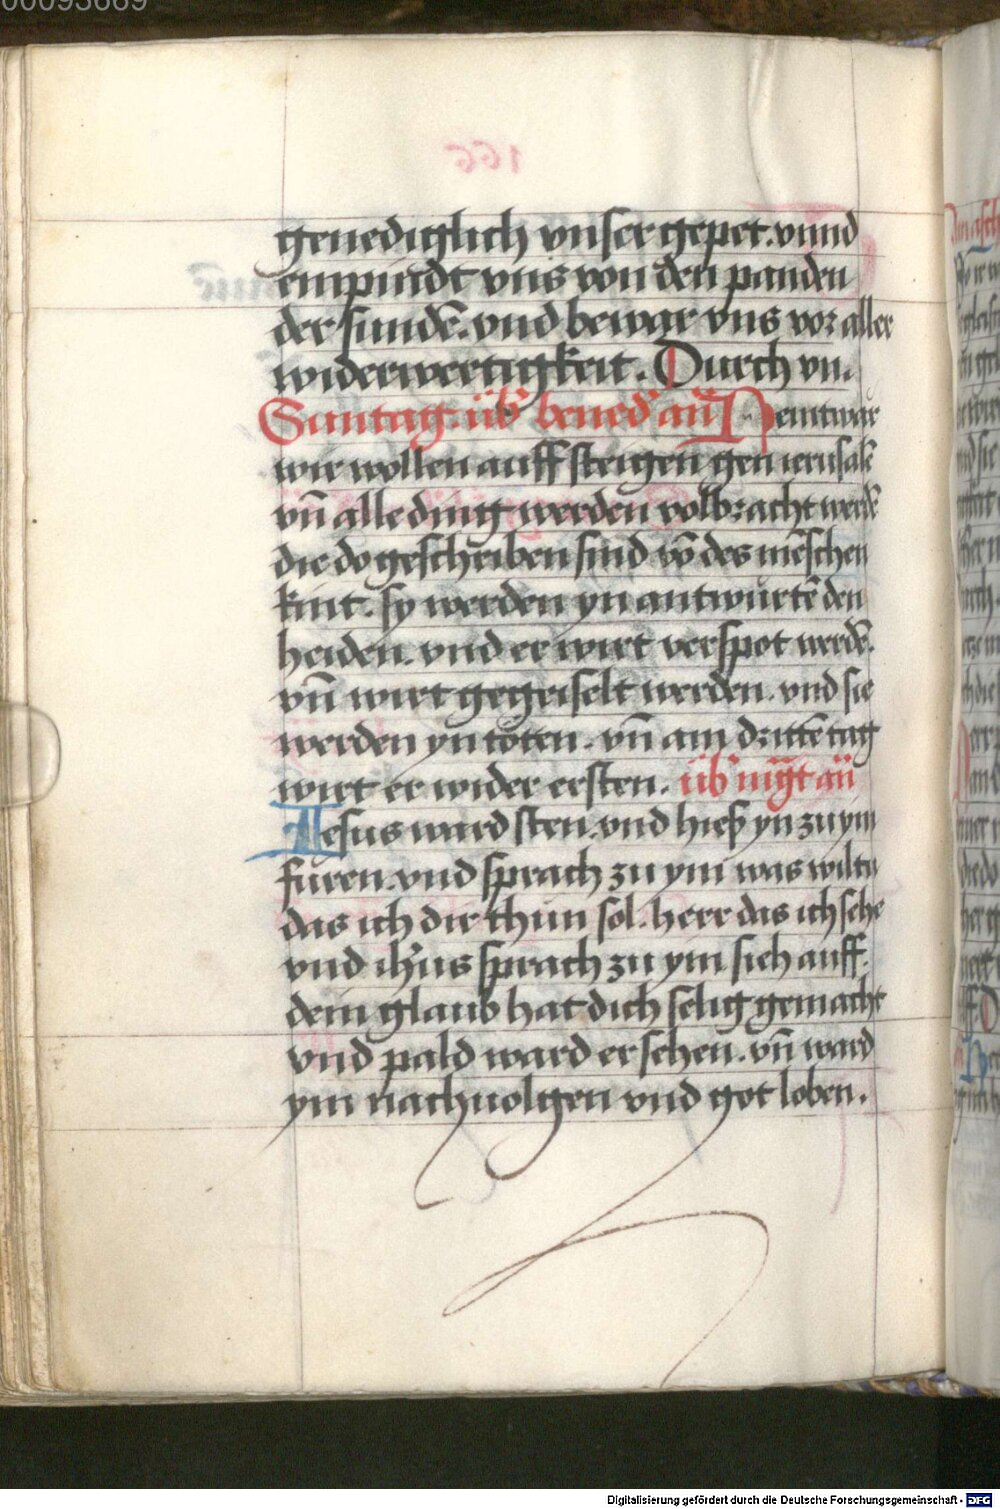 00093669
genediglich vnser gepet. vnnd
empindt vns von den panden
der sundē. vnd bewar vns vor aller
widerwertigkeit. Durch vn.
Suntag. üb̄ bened̄ an̄ Nemt war
wir wollen auff steigen gen ierusalē
vn̄ alle ding werden volbracht werdē
die do geschriben sind vō des mēschen
kint. sy werden yn antwurtē den
heiden. vnd er wirt verspot werdē.
vn̄ wirt gegeiselt werden. vnd sie
werden yn töten. vn̄ am drittē tag
wirt er wider ersten. üb̄ mḡt an̄
Iesus ward sten. vnd hieß yn zu ym
füren. vnd sprach zu ym was wiltu
das ich dir thun sol. herr das ich sehe
vnd ih̄us sprach zu ym. sich auff.
dein glaub hat dich selig gemacht
vnd pald ward er sehen. vn̄ ward
ym nachuolgen vnd got loben.
Digitalisierung gefördert durch die Deutsche Forschungsgemeinschaft - DFG